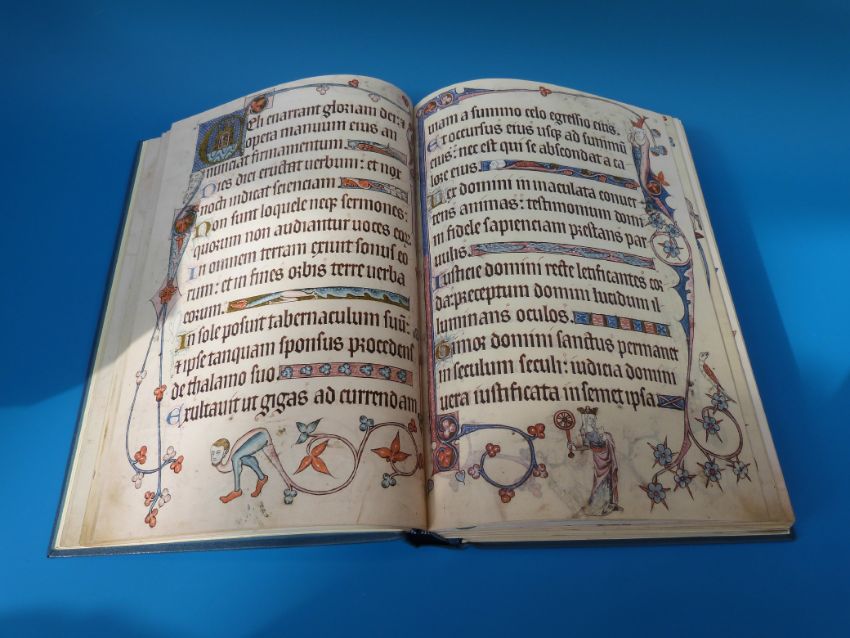 Celi enarrant gloriam dei: et
opera manuum eius an
nunciat firmamentum.
Dies diei eructat verbum: et nox
nocti indicat scienciam
Non sunt loquele neqꝫ sermones:
quorum non audiantur voces eorꝫ
In omnem terram exiuit sonus eo
rum: et in fines orbis terre verba
eorum.
In sole posuit tabernaculum suū:
et ipse tanquam sponsus procedens
de thalamo suo.
Exultauit ut gigas ad currendam
uiam a summo celo egressio eius.
Et occursus eius usqꝫ ad summū
eius: nec est qui se abscondat a ca
lore eius.
Lex domini in maculata conuer
tens animas: testimonium domī
ni fidele sapienciam prestans par
uulis.
Iusticie domini recte letificantes cor
da: preceptum domini lucidum il
luminans oculos.
Timor domini sanctus permanet
in seculum seculi: iudicia domini
uera iustificata in semet ipsa.